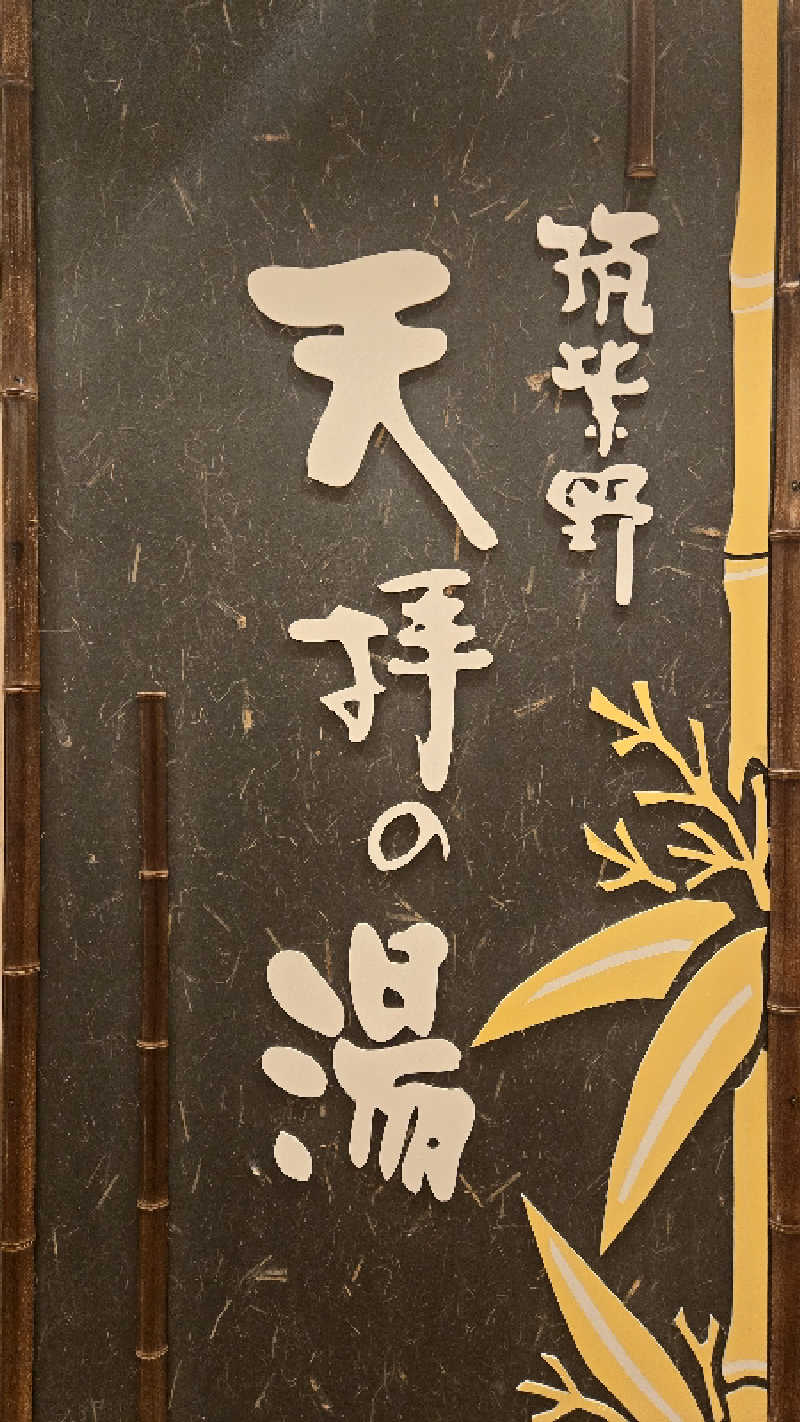 筑紫野
天拝の湯